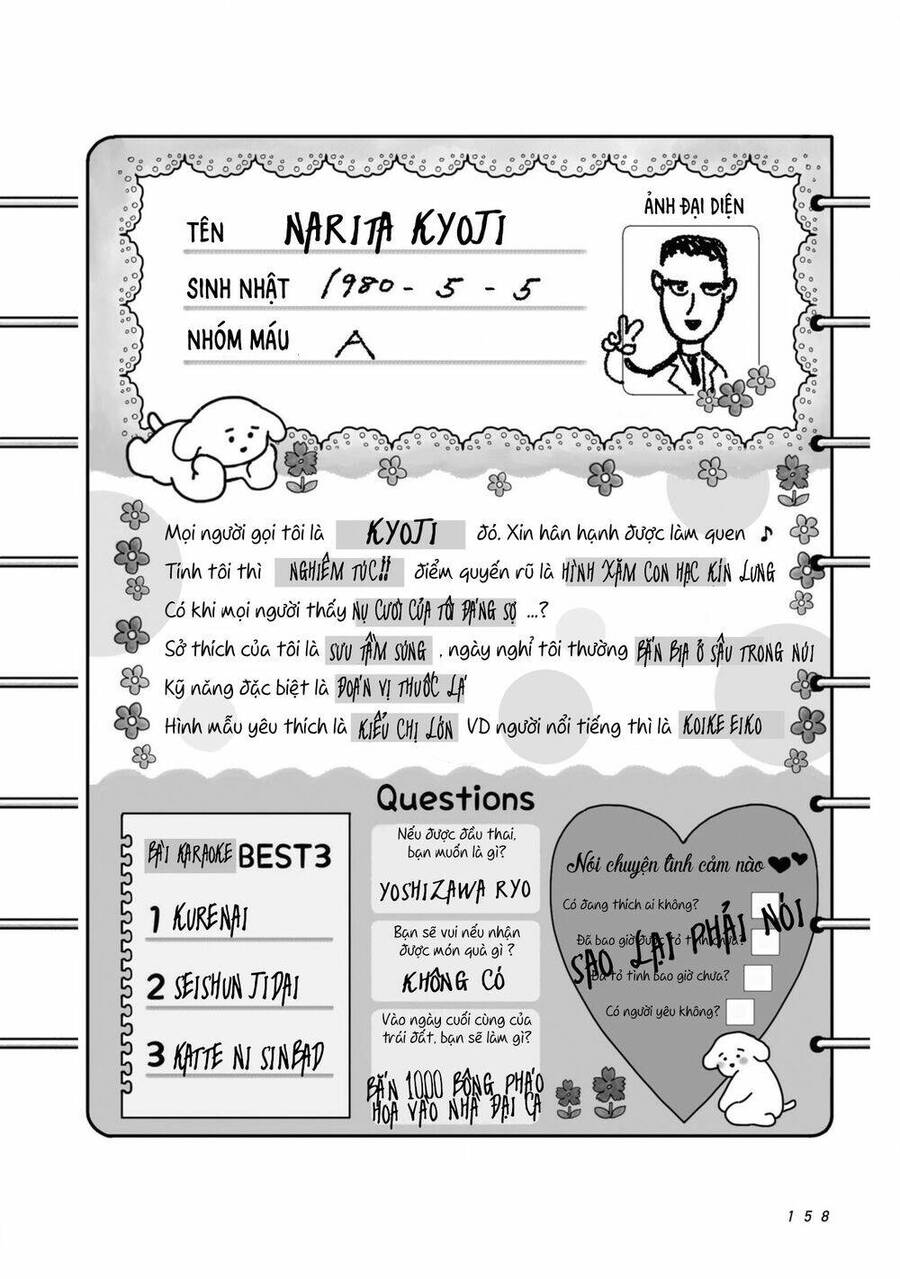 TÊN NARITA KYOJI
ẢNH ĐẠI DIỆN
SINH NHẬT 1980 - 5 - 5
NHÓM MÁU A
Mọi người gọi tôi là KYOJI đó. Xin hân hạnh được làm quen ♪
Tính tôi thì NGHIÊM TÚC!! điểm quyến rũ là HÌNH XĂM CON HẠC KÍN LƯNG
Có khi mọi người thấy NỤ CƯỜI CỦA TÔI ĐÁNG SỢ ...?
Sở thích của tôi là SƯU TẦM SÚNG , ngày nghỉ tôi thường BẮN BIA Ở SÂU TRONG NÚI
Kỹ năng đặc biệt là ĐOÁN VỊ THUỐC LÁ
Hình mẫu yêu thích là KIỂU CHỊ LỚN VD người nổi tiếng thì là KOIKE EIKO
BÀI KARAOKE BEST3
1 KURENAI
2 SEISHUN JIDAI
3 KATTE NI SINBAD
Questions
Nếu được đầu thai,
bạn muốn là gì?
YOSHIZAWA RYO
Bạn sẽ vui nếu nhận
được món quà gì ?
KHÔNG CÓ
Vào ngày cuối cùng của
trái đất, bạn sẽ làm gì?
BẮN 1000 BÔNG PHÁO
HOA VÀO NHÀ ĐẠI CA
Nói chuyện tình cảm nào
Có đang thích ai không?
Đã bao giờ được tỏ tình chưa?
Đã tỏ tình bao giờ chưa?
Có người yêu không?
SAO LẠI PHẢI NÓI
158